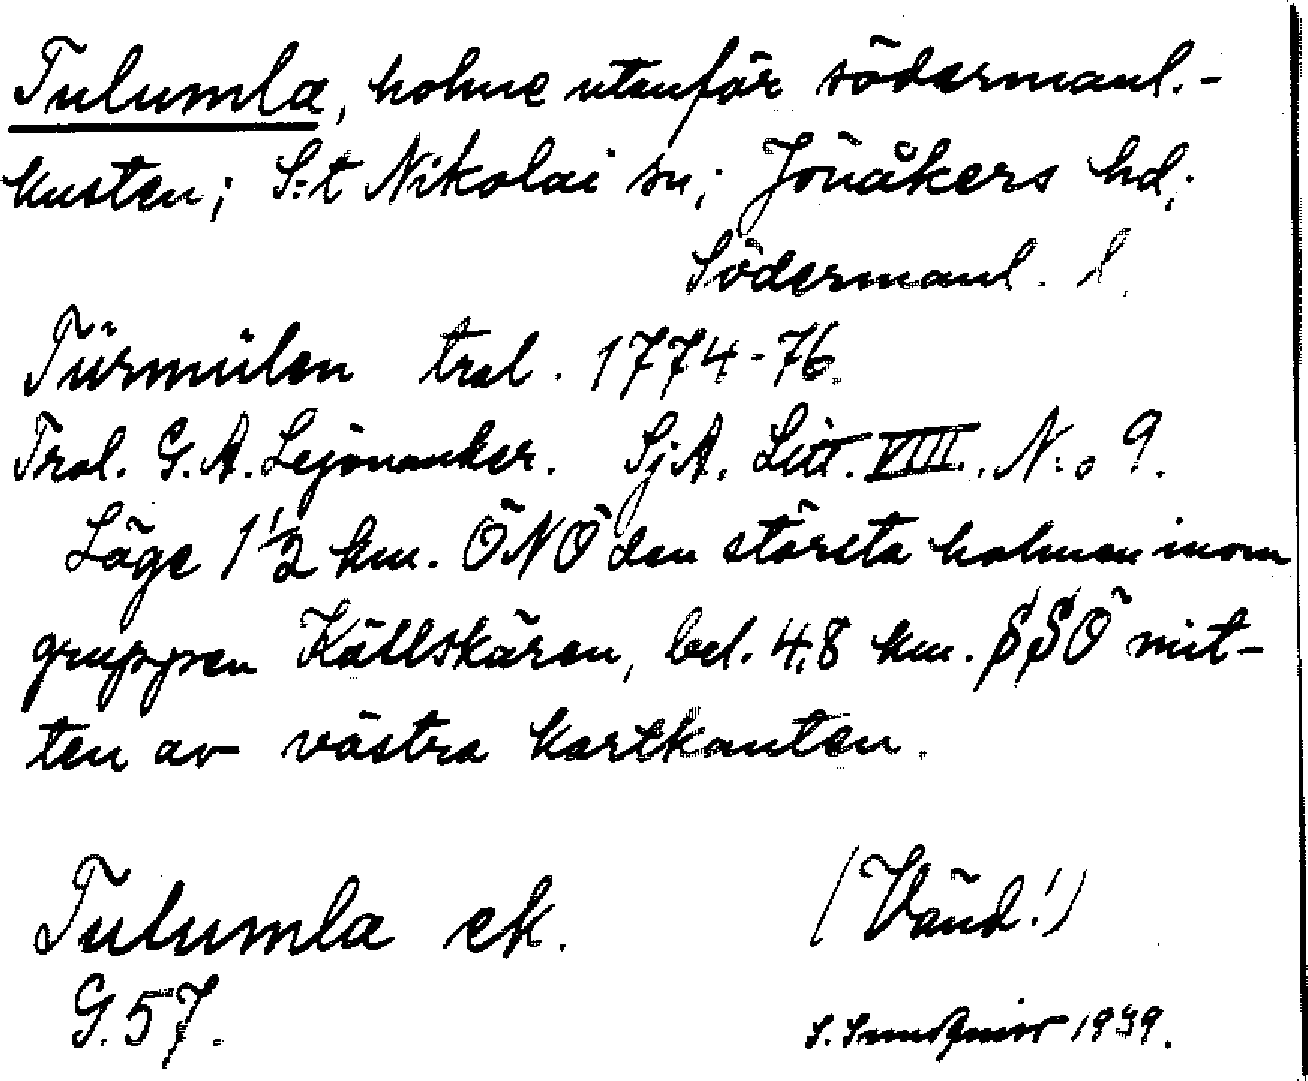 Tulumla, holme utanför södermanl.-
kusten; S:t Nikolai sn; Jönåkers hd;
Södermanl. l.
Türmülen tral. 1774-76.
Tral. G. A. Lejonanker. SjA. Litt. VIII. N:o 9.
Läge 1 1/2 km. ÖNÖ den största holmen inom
gruppen Källskären, bel. 4,8 km. SSÖ mit-
ten av västra kartkanten.
Tulumla ek. (Vänd!)
G. 57.
S. Sundqvist 1939.